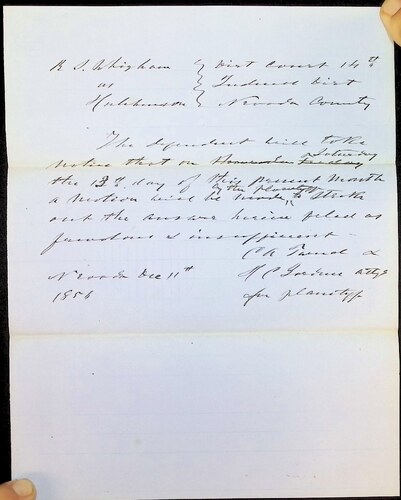 R S. Whigham } Dist Court 14th
vs } Judicial Dist
Hutchinson } Nevada County
The Defendant will take
notice that on Saturday
the 13th day of this present month
a motion will be made by the plaintiff to Strike
out the answer herein filed as
frivolous & insufficient -
Nevada Dec 11th
1856
C R &
H C Attys
for plaintiff